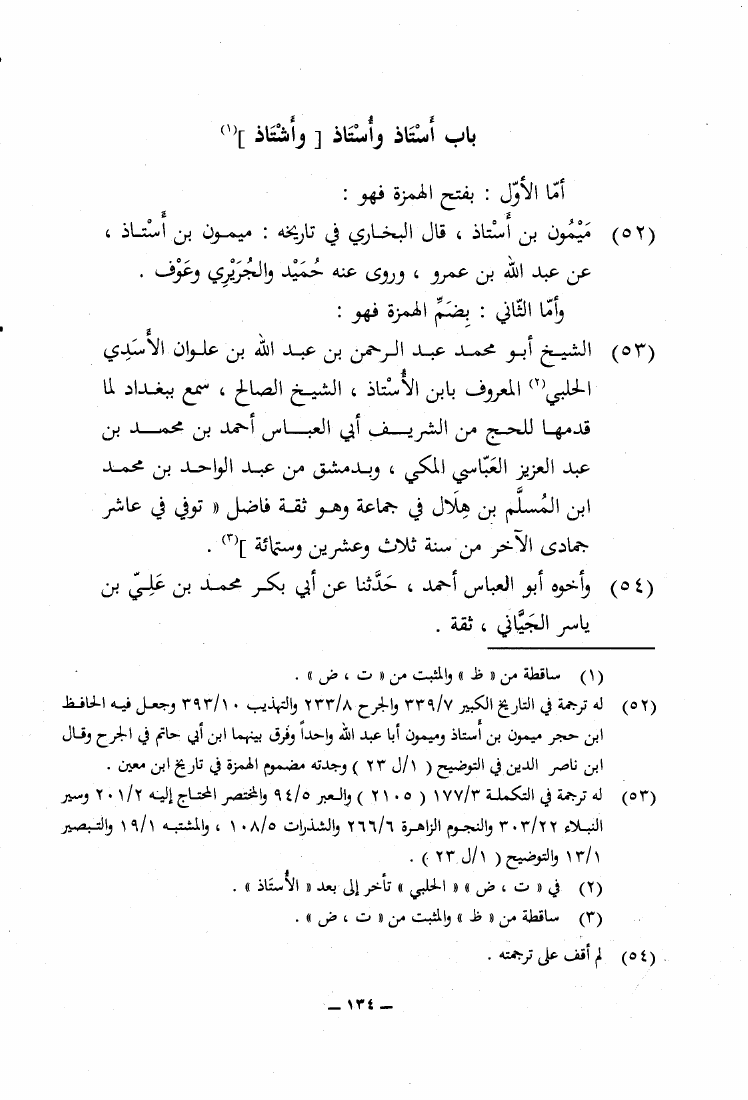 باب أَسْتَاذ وأُسْتَاذ [ وأَشْتَاذ ](١)
أمّا الأوّل : بفتح الهمزة فهو :
(٥٢) مَيْمُون بن أَسْتاذ ، قال البخاري في تاريخه : ميمون بن أَسْتاذ ،
عن عبد الله بن عمرو ، وروى عنه حُمَيْد والجُرَيْرِي وعَوْف .
وأمّا الثّاني : بِضَمِّ الهمزة فهو :
(٥٣) الشيخ أبو محمد عبد الرحمن بن عبد الله بن علوان الأسَدِي
الحلبي(٢) المعروف بابن الأُسْتاذ ، الشيخ الصالح ، سمع ببغداد لما
قدمها للحج من الشريف أبي العباس أحمد بن محمد بن
عبد العزيز العَبّاسي المكي ، وبدمشق من عبد الواحد بن محمد
ابن المُسلَّم بن هِلَال في جماعة وهو ثقة فاضل « توفي في عاشر
جمادى الآخر من سنة ثلاث وعشرين وستمائة ](٣) .
(٥٤) وأخوه أبو العباس أحمد ، حَدَّثنا عن أبي بكر محمد بن عَلِيّ بن
ياسر الجَيَّاني ، ثقة .
(١) ساقطة من « ظ » والمثبت من « ت ، ض » .
(٥٢) له ترجمة في التاريخ الكبير ٣٣٩/٧ والجرح ٢٣٣/٨ والتهذيب ٣٩٣/١٠ وجعل فيه الحافظ
ابن حجر ميمون بن أستاذ وميمون أبا عبد الله واحداً وفرق بينهما ابن أبي حاتم في الجرح وقال
ابن ناصر الدين في التوضيح ( ١/ل ٢٣ ) وجدته مضموم الهمزة في تاريخ ابن معين .
(٥٣) له ترجمة في التكملة ١٧٧/٣ ( ٢١٠٥ ) والعبر ٩٤/٥ والمختصر المحتاج إليه ٢٠١/٢ وسير
النبلاء ٣٠٣/٢٢ والنجوم الزاهرة ٢٦٦/٦ والشذرات ١٠٨/٥ ، والمشتبه ١٩/١ والتبصير
١٣/١ والتوضيح ( ١/ل ٢٣ ) .
(٢) في « ت ، ض » « الحلبي » تأخر إلى بعد « الأُستَاذ » .
(٣) ساقطة من « ظ » والمثبت من « ت ، ض » .
(٥٤) لم أقف على ترجمته .
– ١٣٤ –